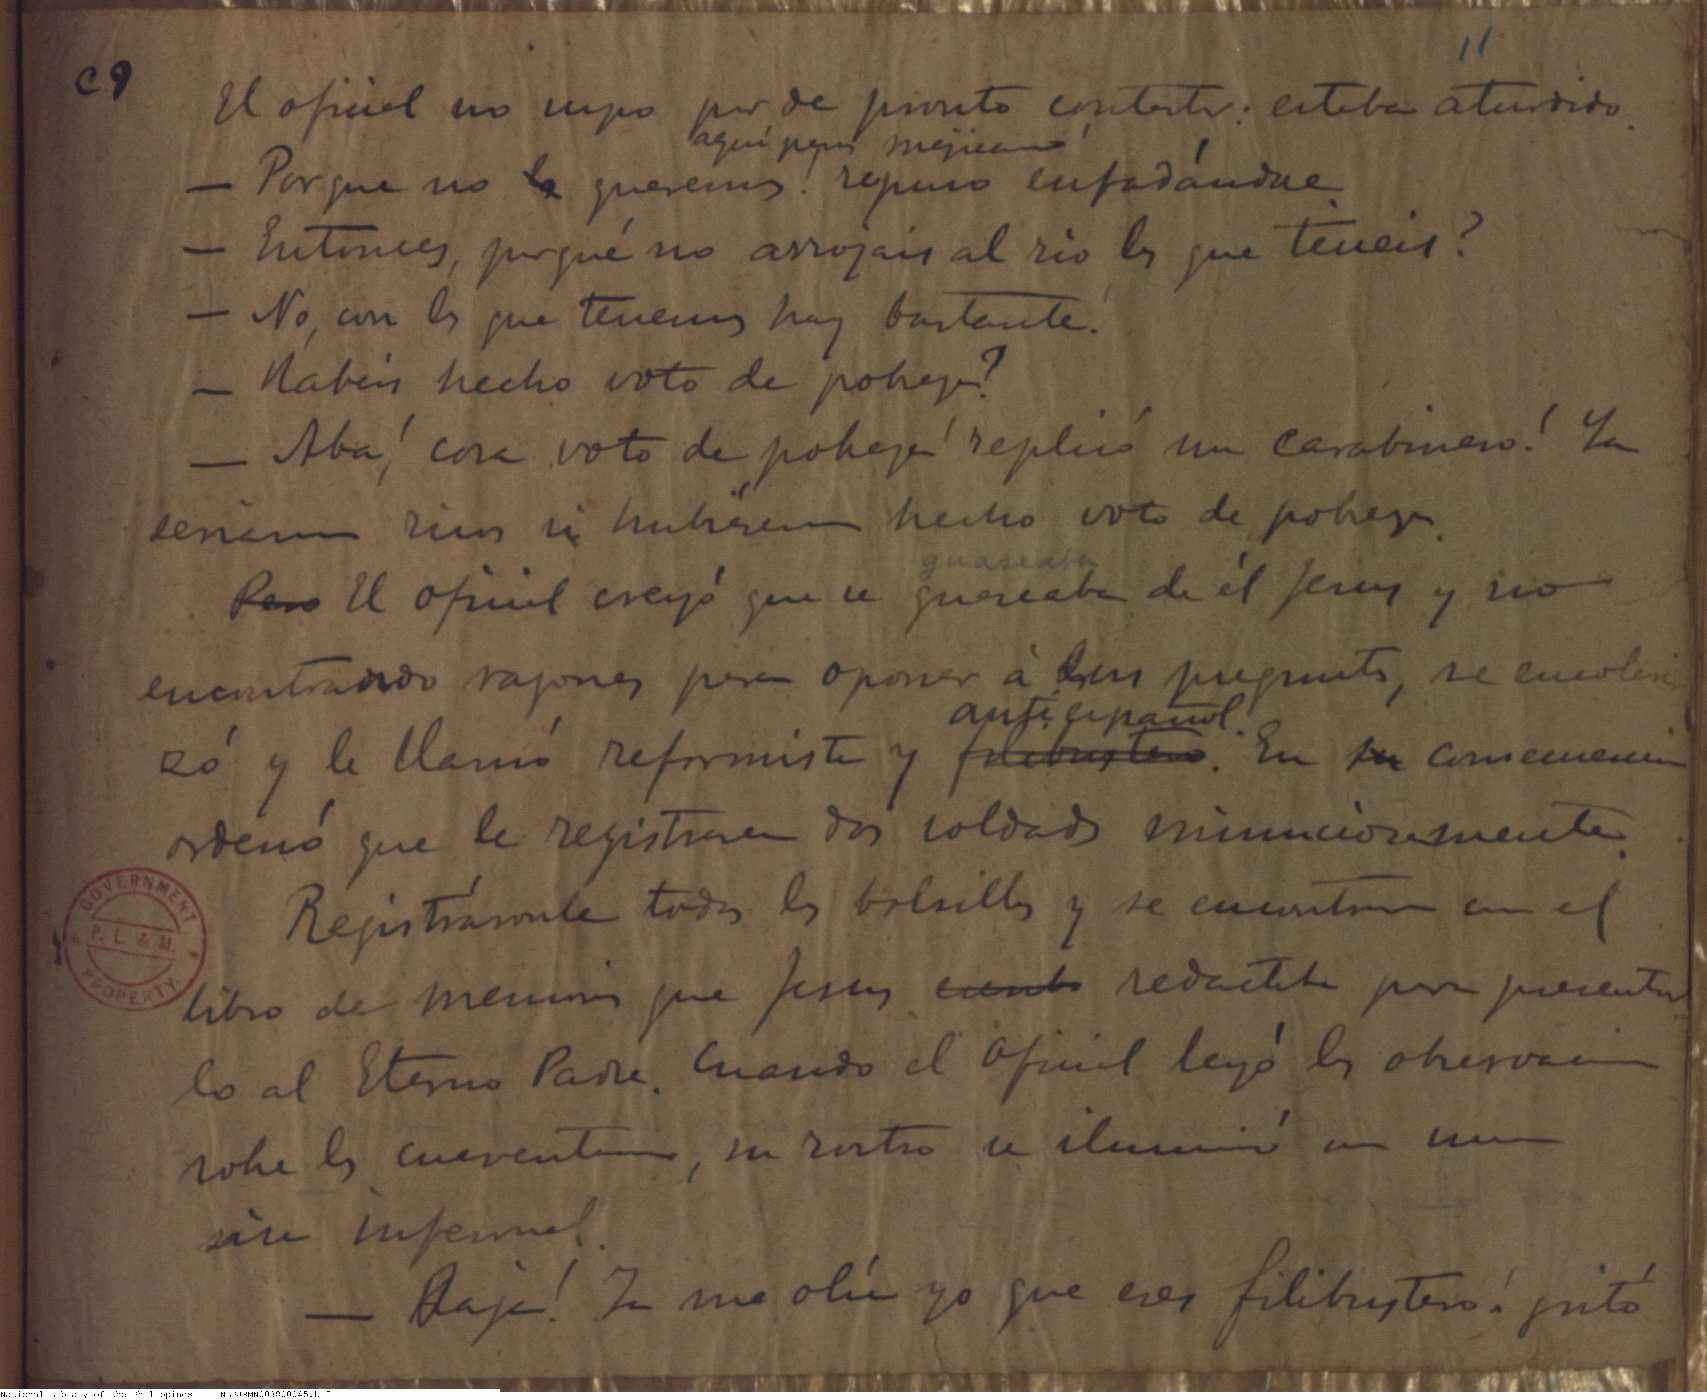 C9
11
El oficial no supo por de pronto contestar: estaba aturdido.
aquí pesos mejicanos
— Porque no queremos! repuso enfadándose
— Entonces, porqué no arrojais al rio los que teneis?
— No, con los que tenemos hay bastante!
— Habeis hecho voto de pobreza?
— Aba! cosa voto de pobreza! replicó un carabinero! Ya
serian ricos si hubiesen hecho voto de pobreza.
guaseaba
Pero El oficial creyó que se guaseaba de él Jesus y no
encontrando razones para oponer á sus preguntas, se encoleri
zó y le llamó reformista y filibustero. En su consecuencia
anti español.
ordenó que le registrasen dos soldados minuciosamente.
Registráronle todos los bolsillos y se encontraron en el
libro de memorias que Jesus redactaba para presentar
lo al Eterno Padre. Cuando el oficial leyó las observaciones
sobre los cuarentenas, su rostro se iluminó con una
risa infernal.
— Ajajá! Ya me olía yo que eres filibustero! gritó
GOVERNMENT
P. L. & M.
PROPERTY
National Library of the Philippines